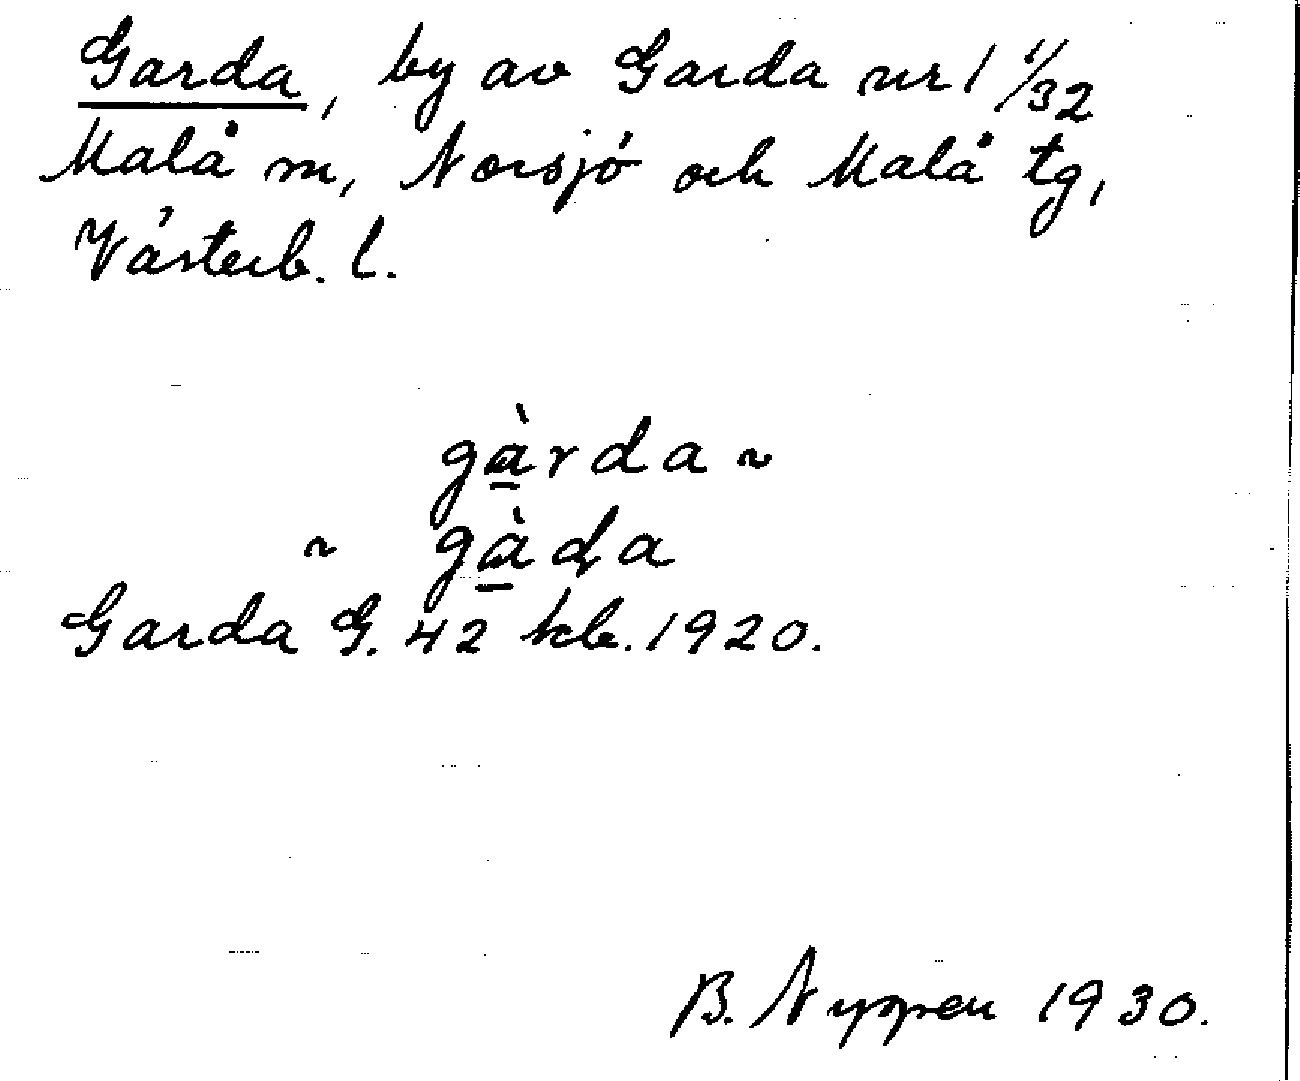 Garda, by av Garda nr 1 1/32
Malå m, Norsjö och Malå tg,
Västerb. l.
gàrda ~
~ gàḍa
Garda G. 42 kb. 1920.
B. Nyppen 1930.